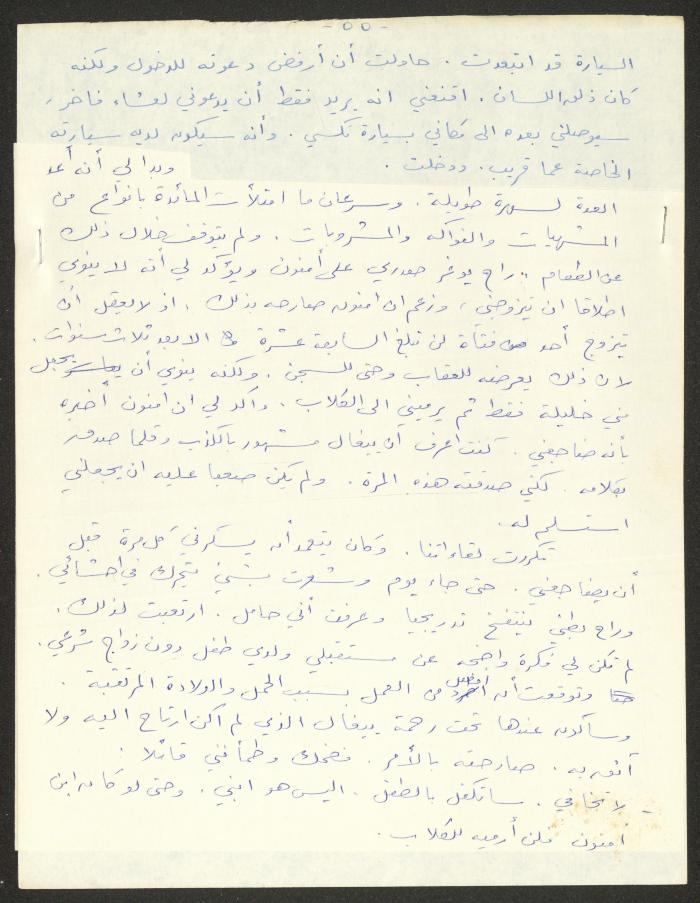 - ٥٥ -
السيارة قد ابتعدت . حاولت أن أرفض دعوته للدخول ولكنه
كان ذلق اللسان . اقنعني انه يريد فقط أن يدعوني لعشاء فاخر ،
سيوصلني بعده الى مكاني بسيارة تكسي . وأنه سيكون لديه سيارته
الخاصة عما قريب . ودخلت . وبدا لي أنه أعد
العدة لسهرة طويلة . وسرعان ما امتلأت المائدة بانواع من
المشهيات والفواكه والمشروبات . ولم يتوقف خلال ذلك
عن الطعام .. راح يوغر صدري على أمنون ويؤكد لي أنه لا ينوي
اطلاقا ان يتزوجني ، وزعم ان امنون صارحه بذلك . اذ لا يعقل أن
يتزوج أحد من فتاة لن تبلغ السابعة عشرة الا بعد ثلاث سنوات .
لان ذلك يعرضه للعقاب وحتى للسجن . ولكنه ينوي أن يجعل
مني خليلة فقط ثم يرميني الى الكلاب . واكد لي ان امنون أخبره
بأنه ضاجعني . كنت اعرف ان بيغال مشهور بالكذب وقلما صدقت
كلامه . لكني صدقته هذه المرة . ولم يكن صعبا عليه ان يجعلني
استسلم له .
تكررت لقاءاتنا . وكان يتعمد أن يسكرني كل مرة قبل
أن يضاجعني . حتى جاء يوم وشعرت بشيئ يتحرك في احشائي .
وراح بطني ينتفخ تدريجيا وعرفت أني حامل . ارتعبت لذلك .
لم تكن لي فكرة واضحة عن مستقبلي ولدي طفل دون زواج شرعي .
وتوقعت أن أفصل من العمل بسبب الحمل والولادة المرتقبة .
وسأكون عندها تحت رحمة بيغال الذي لم اكن ارتاح اليه ولا
أثق به . صارحته بالأمر . فضحك وطمأنني قائلا :
- لا تخافي . سأتكفل بالطفل . اليس هو ابني . وحتى لو كان ابن
امنون فلن أرميه للكلاب .